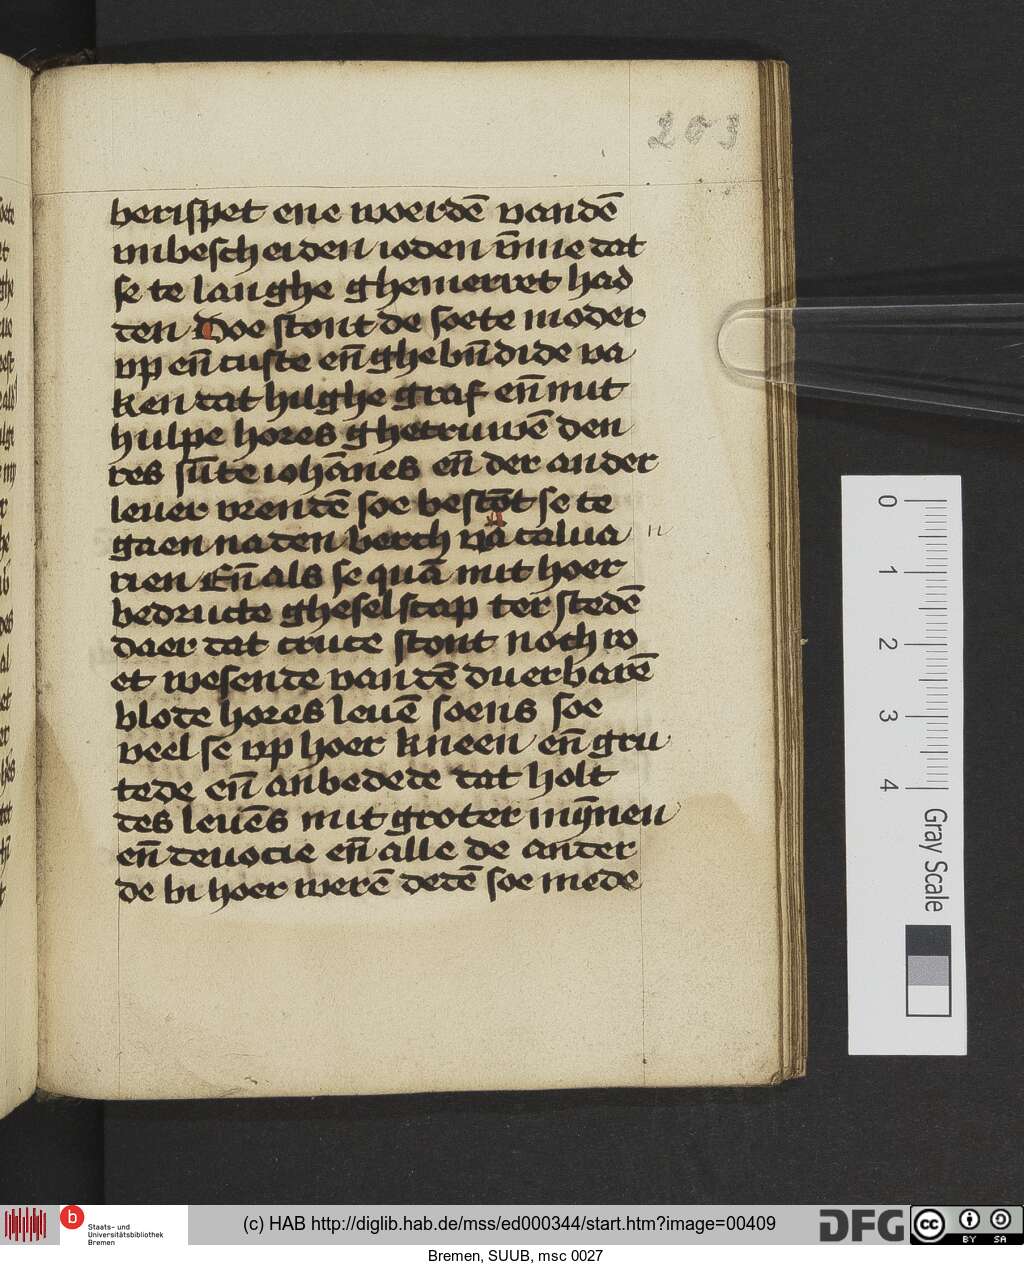 203
berispet ene woerdē vandē
unbescheiden ioden v̄mme dat
se te langhe ghemerret had
den Doe stont de soete moder
vp en̄ custe en̄ ghebn̄didede va
ken dat hilghe graf en̄ mit
hulpe hores ghetruwē den
res sūte iohānes en̄ der ander
leuer vrendē soe bestōt se te
gaen na den berch vā calua
rien En̄ als se quā mit hoer
bedructe gheselscap ter stedē
daer dat cruce stont noch ro
et wesende van dē duerbarē
blode hores leuē soens soe
veel se vp hoer kneen en̄ gru
tede en̄ anbedede dat holt
des leuēs mit groter mȳnen
en̄ deuocie en̄ alle de ander
de bi hoer werē dedē soe mede
0
1
2
3
4
Gray Scale
b
Staats- und
Universitätsbibliothek
Bremen
(c) HAB http://diglib.hab.de/mss/ed000344/start.htm?image=00409
DFG
cc
BY SA
Bremen, SUUB, msc 0027